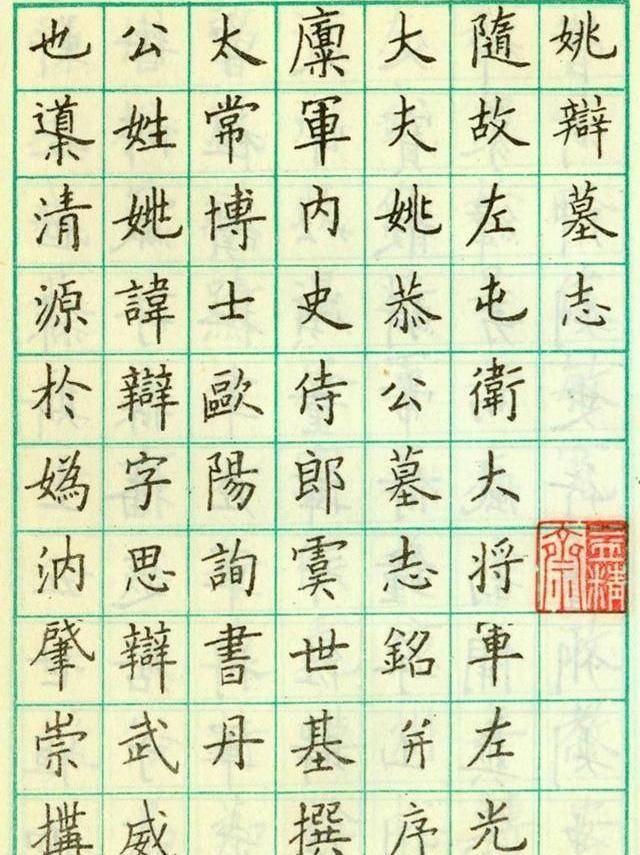 姚辯墓志
隨故左屯衛大将軍左光
大夫姚恭公墓志銘并序
廩軍内史侍郎虞世基撰
太常博士歐陽詢書丹
公姓姚諱辯字思辯武威
也清源於嬀汭肇崇搆